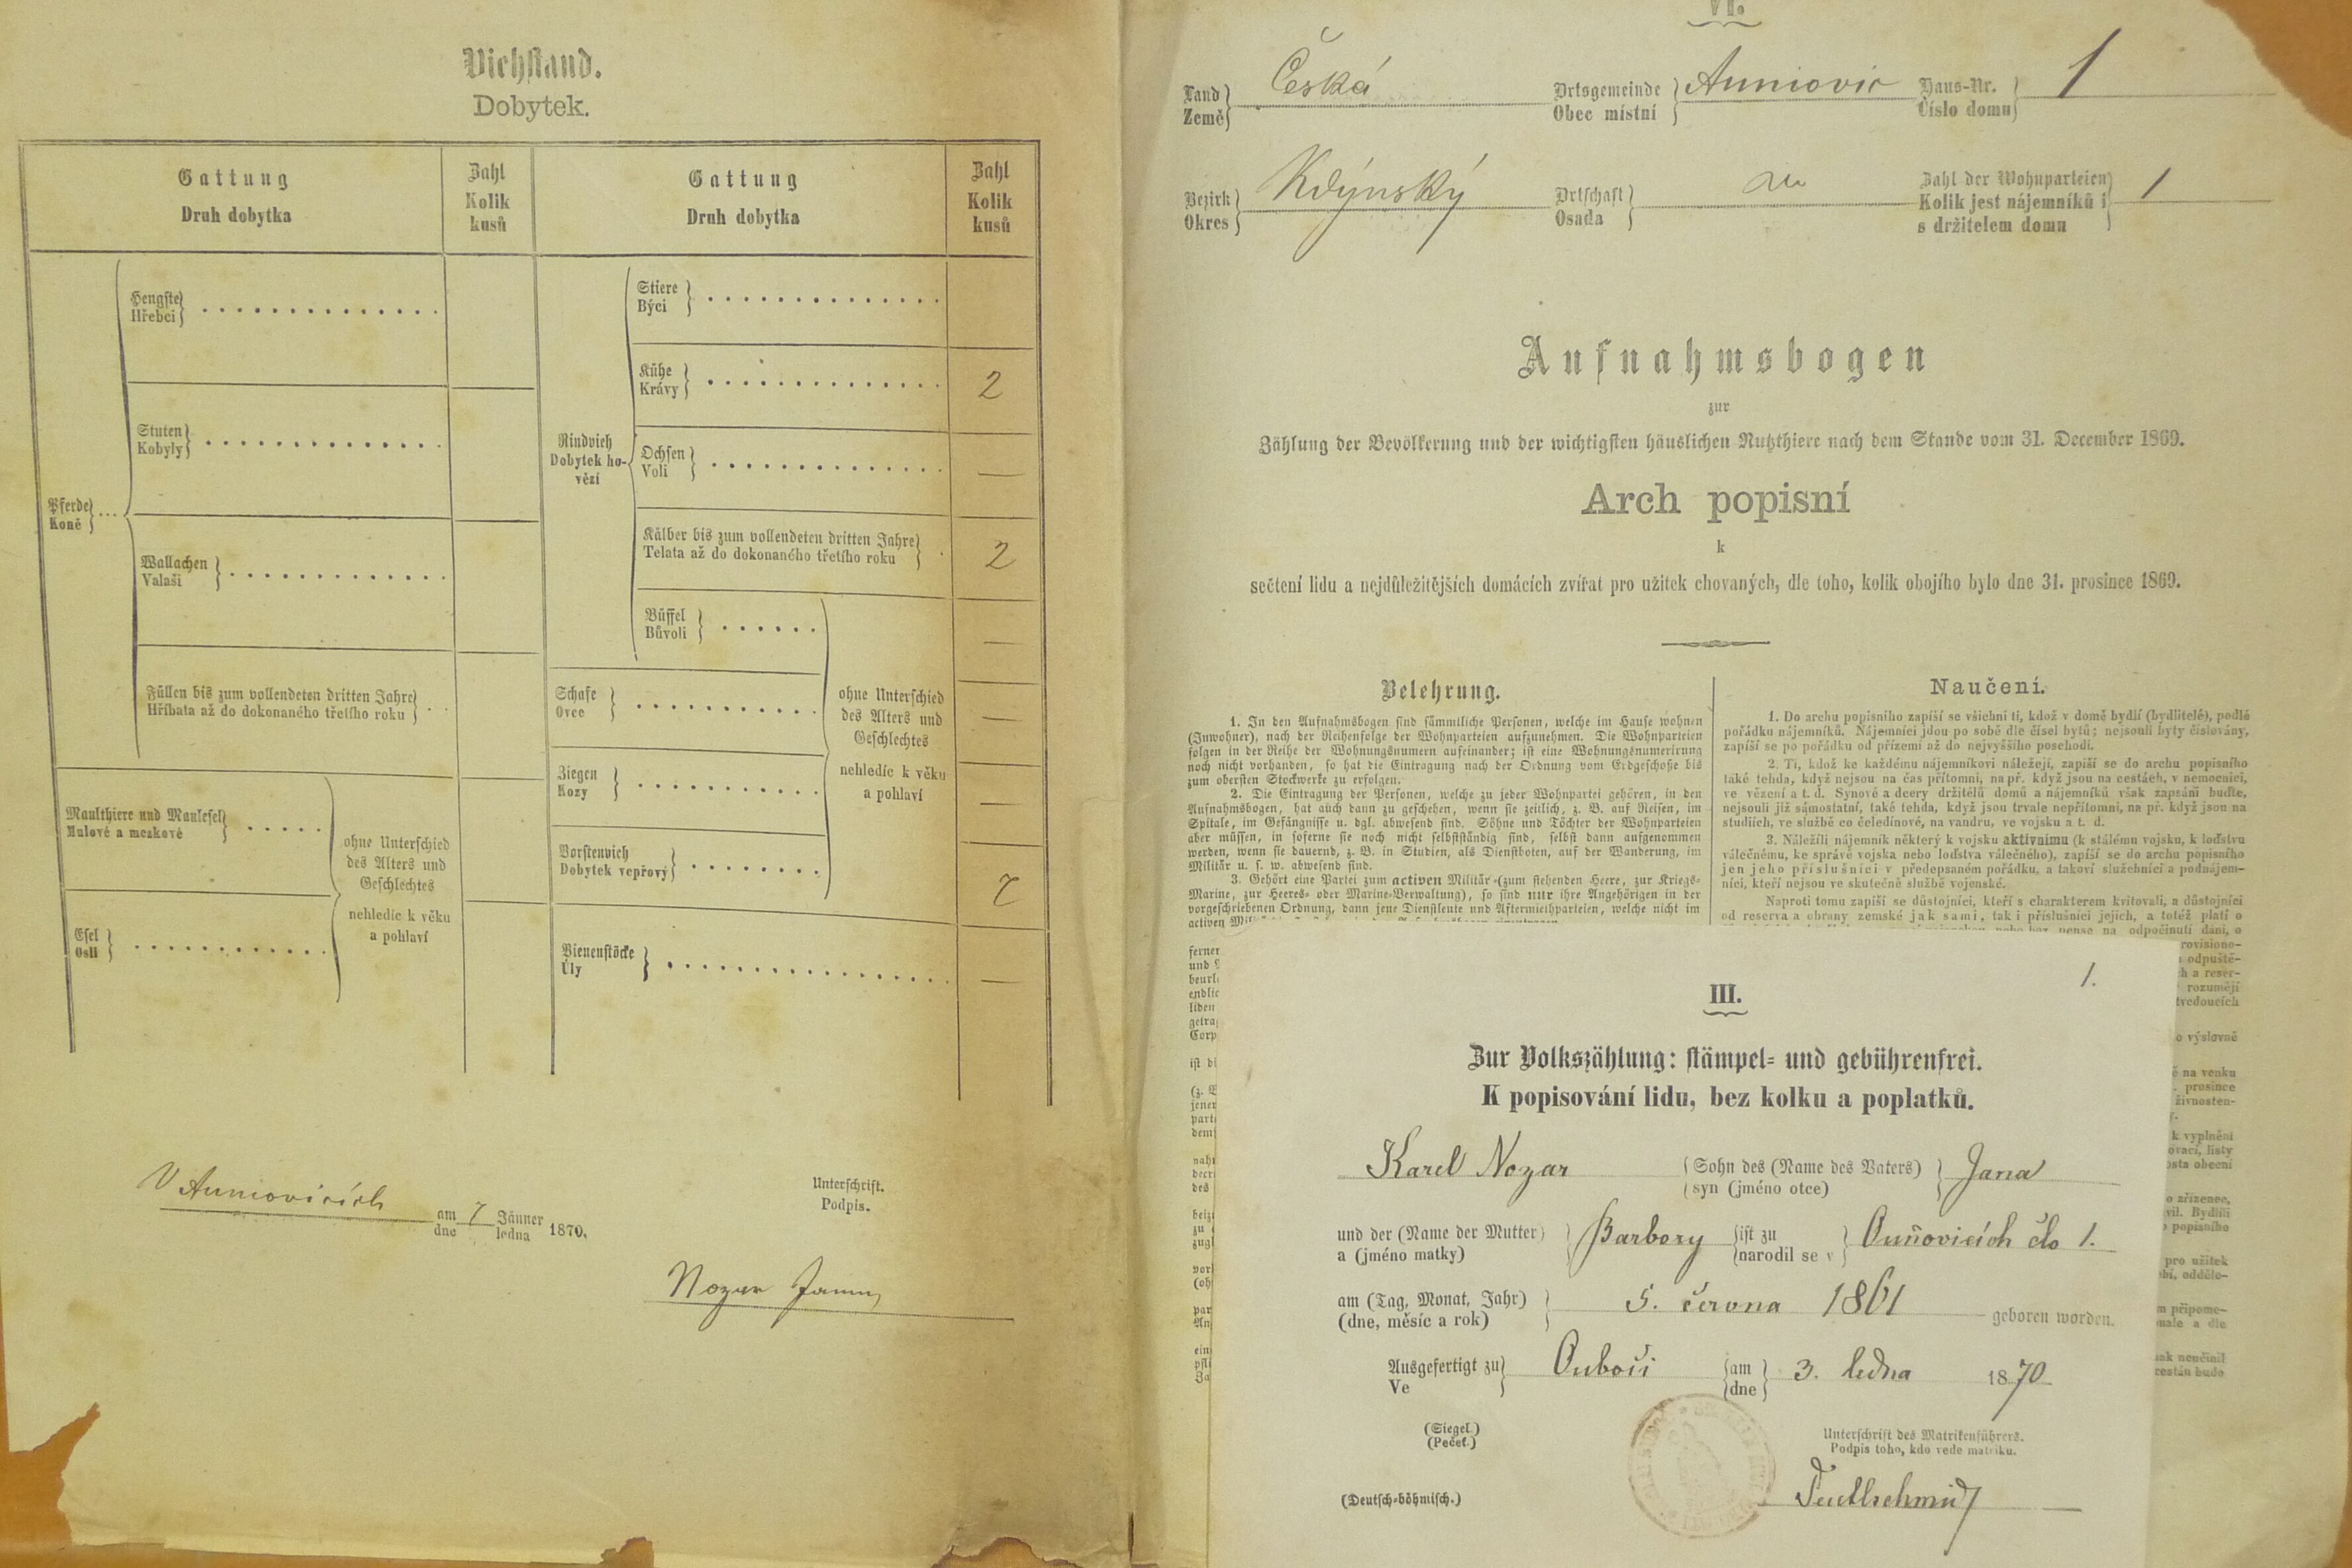 Viehstand.
Dobytek.
Gattung
Druh dobytka
Zahl
Kolik
kusů
Gattung
Druh dobytka
Zahl
Kolik
kusů
Pferde
Koně
Hengste
Hřebci
Stuten
Kobyly
Wallachen
Valaši
Füllen bis zum vollendeten dritten Jahre
Hříbata až do dokonaného třetího roku
Maulthiere und Maulesel
Mulové a mezkové
Esel
Osli
ohne Unterschied
des Alters und
Geschlechtes
nehledíc k věku
a pohlaví
Rindvieh
Dobytek ho-
vězí
Stiere
Býci
Kühe
Krávy
2
Ochsen
Voli
—
Kälber bis zum vollendeten dritten Jahre
Telata až do dokonaného třetího roku
2
Büffel
Bůvoli
—
Schafe
Ovce
—
Ziegen
Kozy
—
Borstenvieh
Dobytek vepřový
7
ohne Unterschied
des Alters und
Geschlechtes
nehledíc k věku
a pohlaví
Bienenstöcke
Úly
—
V Auniovicích am 7 Jänner 1870.
dne ledna
Unterschrift.
Podpis.
Nozar
VI.
Land Česká Ortsgemeinde Auniovic Haus-Nr. 1
Země Obec místní Číslo domu
Bezirk Kdýnský Ortschaft Zahl der Wohnparteien 1
Okres Osada Kolik jest nájemníků i
s držitelem domu
Aufnahmsbogen
zur
Zählung der Bevölkerung und der wichtigsten häuslichen Nutzthiere nach dem Stande vom 31. December 1869.
Arch popisní
k
sečtení lidu a nejdůležitějších domácích zvířat pro užitek chovaných, dle toho, kolik obojího bylo dne 31. prosince 1869.
Belehrung.
1. In den Aufnahmsbogen sind sämmtliche Personen, welche im Hause wohnen
(Inwohner), nach der Reihenfolge der Wohnparteien aufzunehmen. Die Wohnparteien
folgen in der Reihe der Wohnungsnumern aufeinander; ist eine Wohnungsnumerirung
noch nicht vorhanden, so hat die Eintragung nach der Ordnung vom Erdgeschoße bis
zum obersten Stockwerke zu erfolgen.
2. Die Eintragung der Personen, welche zu jeder Wohnpartei gehören, in den
Aufnahmsbogen, hat auch dann zu geschehen, wenn sie zeitlich, z. B. auf Reisen, im
Spitale, im Gefängnisse u. dgl. abwesend sind. Söhne und Töchter der Wohnparteien
aber müssen, in soferne sie noch nicht selbstständig sind, selbst dann aufgenommen
werden, wenn sie dauernd, z. B. in Studien, als Dienstboten, auf der Wanderung, im
Militär u. s. w. abwesend sind.
3. Gehört eine Partei zum activen Militär (zum stehenden Heere, zur Kriegs-
Marine, zur Heeres- oder Marine-Verwaltung), so sind nur ihre Angehörigen in der
vorgeschriebenen Ordnung, dann jene Dienstleute und Aftermiethparteien, welche nicht im
activen
Naučení.
1. Do archu popisního zapíší se všichni ti, kdož v domě bydlí (bydlitelé), podlé
pořádku nájemníků. Nájemníci jdou po sobě dle čísel bytů; nejsouli byty číslovány,
zapíší se po pořádku od přízemí až do nejvyššího poschodí.
2. Ti, kdož ke každému nájemníkovi náležejí, zapíší se do archu popisního
také tehda, když nejsou na čas přítomni, na př. když jsou na cestách, v nemocnici,
ve vězení a t. d. Synové a dcery držitelů domů a nájemníků však zapsáni buďte,
nejsouli již sámostatní, také tehda, když jsou trvale nepřítomni, na př. když jsou na
studiích, ve službě co čeledínové, na vandru, ve vojsku a t. d.
3. Náležíli nájemník některý k vojsku aktivnímu (k stálému vojsku, k loďstvu
válečnému, ke správě vojska nebo loďstva válečného), zapíší se do archu popisního
jen jeho příslušníci v předepsaném pořádku, a takoví služebníci a podnájem-
níci, kteří nejsou ve skutečné službě vojenské.
Naproti tomu zapíší se důstojníci, kteří s charakterem kvitovali, a důstojníci
od reserva a obrany zemské jak sami, tak i příslušníci jejich, a totéž platí o
1.
III.
Zur Volkszählung: stämpel- und gebührenfrei.
K popisování lidu, bez kolku a poplatků.
Karel Nozar Sohn des (Name des Vaters) Jana
syn (jméno otce)
und der (Name der Mutter) Barbory ist zu Ouňovicích člo 1.
a (jméno matky) narodil se v
am (Tag, Monat, Jahr) 5. června 1861 geboren worden.
(dne, měsíc a rok)
Ausgefertigt zu Ouboči am 3. ledna 1870
Ve dne
(Siegel.)
(Pečeť.)
Unterschrift des Matrikenführers.
Podpis toho, kdo vede matriku.
(Deutsch-böhmisch.)